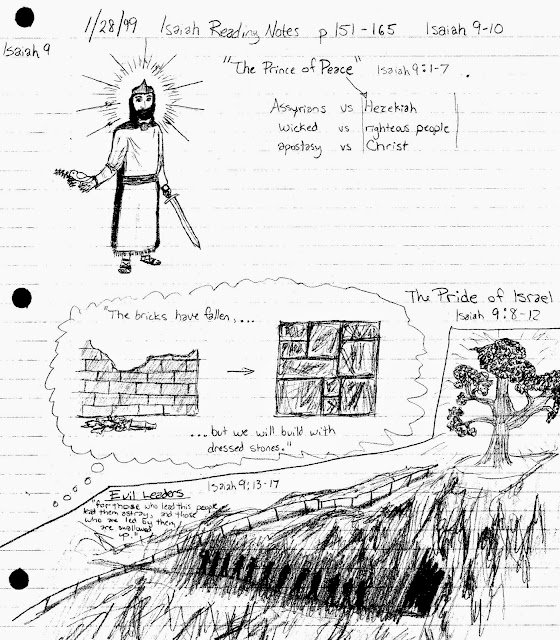 1/28/99 Isaiah Reading Notes p 151-165 Isaiah 9-10
Isaiah 9
"The Prince of Peace" Isaiah 9:1-7
Assyrians vs Hezekiah
wicked vs righteous people
apostasy vs Christ
The Pride of Israel
Isaiah 9:8-12
"The bricks have fallen, ...
...but we will build with
dressed stones."
Isaiah 9:13-17
Evil Leaders
"for those who lead this people
led them astray, and those
who are led by them
are swallowed
up."